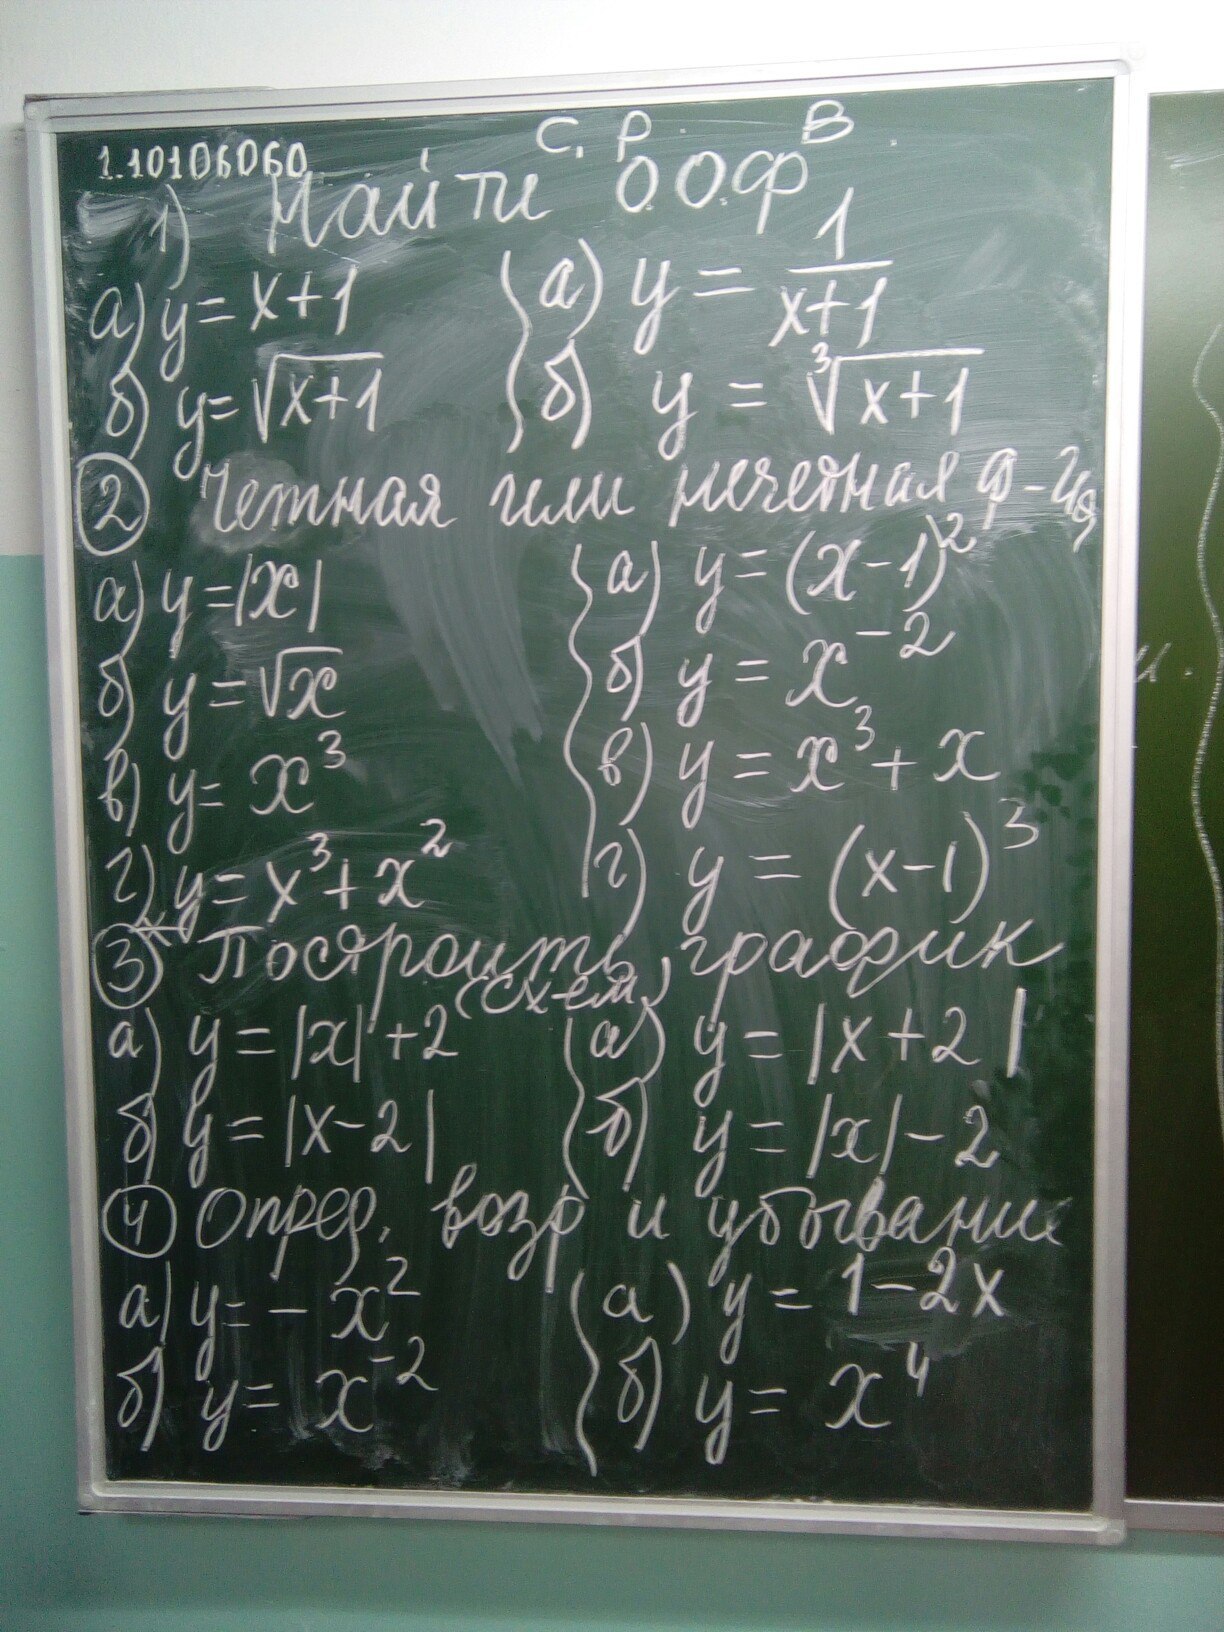 С. Р. В.
1.10106060
1) Найти ООФ
а) y = x+1 а) y = 1/(x+1)
б) y = √(x+1) б) y = ∛(x+1)
② Четная или нечетная ф-ция
а) y = |x| а) y = (x-1)²
б) y = √x б) y = x⁻²
в) y = x³ в) y = x³ + x
г) y = x³ + x² г) y = (x-1)³
③ Построить график
(схем)
а) y = |x| + 2 а) y = |x+2|
б) y = |x-2| б) y = |x| - 2
④ Опред. возр и убывани
а) y = -x² а) y = 1-2x
б) y = x⁻² б) y = x⁴